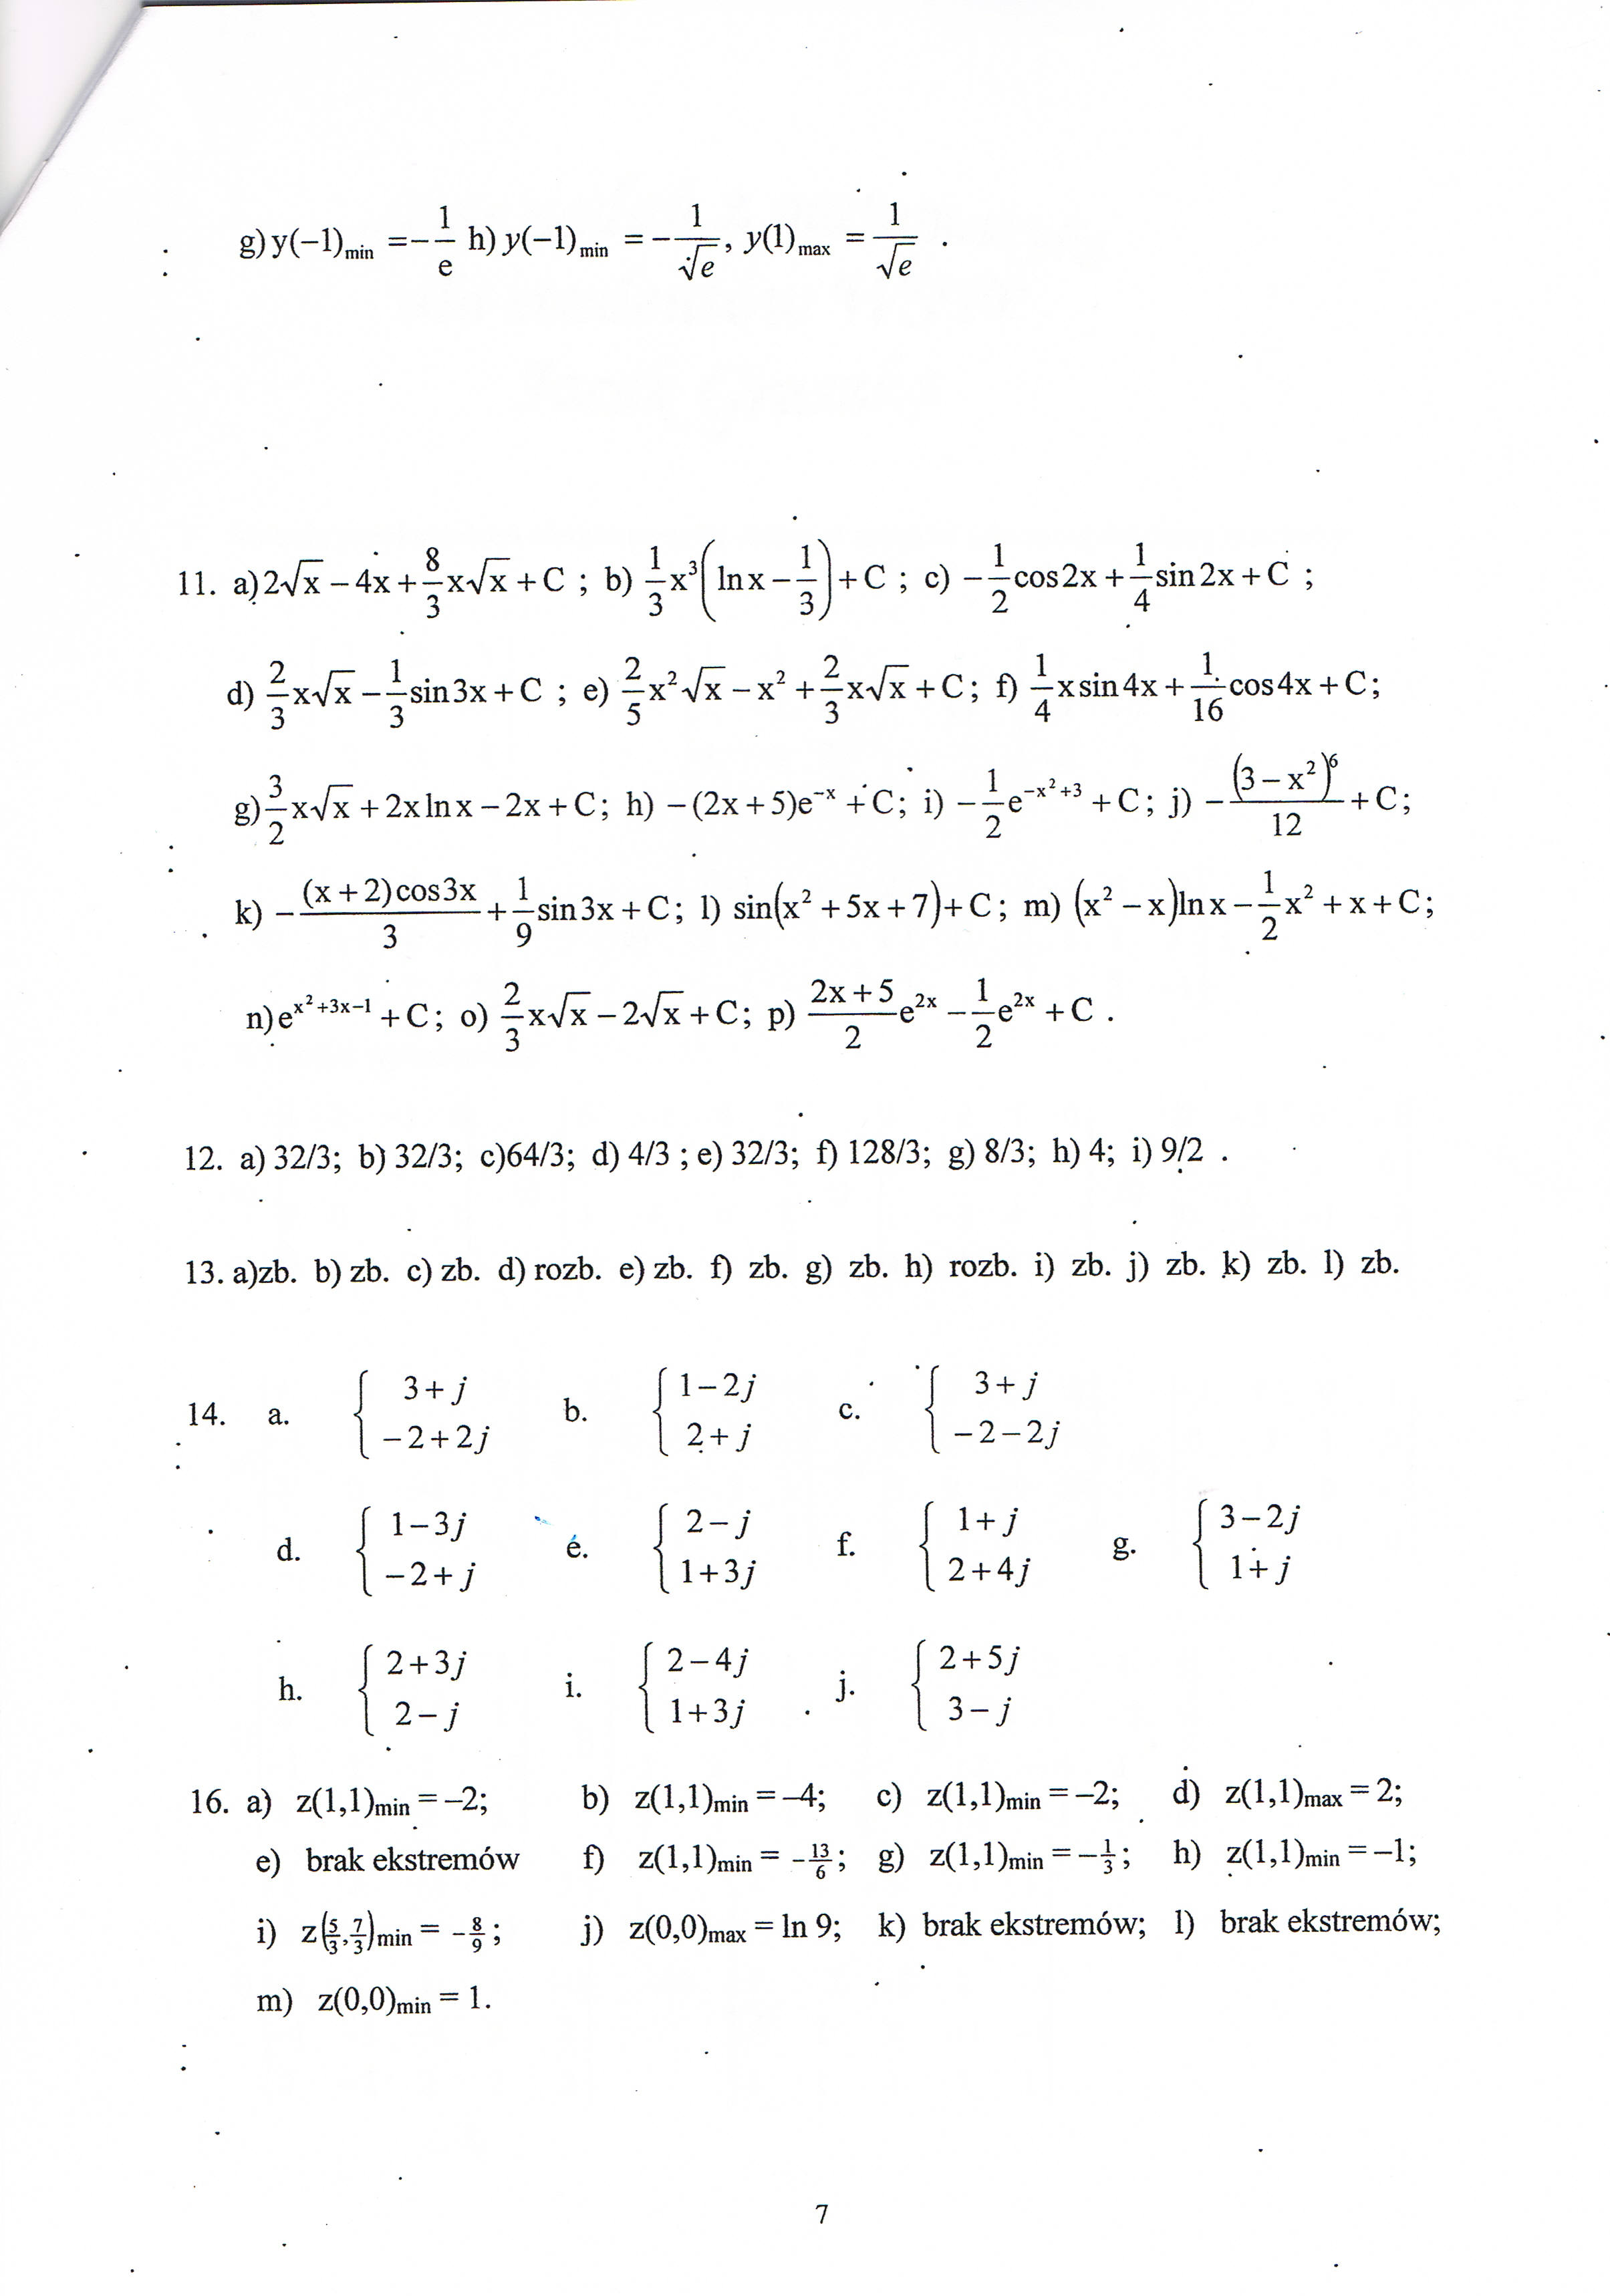 g) y(−1)min = −1/e h) y(−1)min = −1/√e, y(1)max = 1/√e .
11. a) 2√x − 4x + 8/3 x√x + C ; b) 1/3 x³(ln x − 1/3) + C ; c) −1/2 cos 2x + 1/4 sin 2x + C ;
d) 2/3 x√x − 1/3 sin 3x + C ; e) 2/5 x²√x − x² + 2/3 x√x + C; f) 1/4 x sin 4x + 1/16 cos 4x + C;
g) 3/2 x√x + 2x ln x − 2x + C; h) −(2x + 5)e^(−x) + C; i) −1/2 e^(−x²+3) + C; j) −(3 − x²)⁶/12 + C;
k) −(x + 2)cos 3x/3 + 1/9 sin 3x + C; l) sin(x² + 5x + 7) + C; m) (x² − x)ln x − 1/2 x² + x + C;
n) e^(x²+3x−1) + C; o) 2/3 x√x − 2√x + C; p) (2x + 5)/2 e^(2x) − 1/2 e^(2x) + C .
12. a) 32/3; b) 32/3; c)64/3; d) 4/3 ; e) 32/3; f) 128/3; g) 8/3; h) 4; i) 9/2 .
13. a)zb. b) zb. c) zb. d) rozb. e) zb. f) zb. g) zb. h) rozb. i) zb. j) zb. k) zb. l) zb.
14. a. { 3 + j b. { 1 − 2j c. { 3 + j
−2 + 2j 2 + j −2 − 2j
d. { 1 − 3j e. { 2 − j f. { 1 + j g. { 3 − 2j
−2 + j 1 + 3j 2 + 4j 1 + j
h. { 2 + 3j i. { 2 − 4j j. { 2 + 5j
2 − j 1 + 3j 3 − j
16. a) z(1,1)min = –2; b) z(1,1)min = –4; c) z(1,1)min = –2; d) z(1,1)max = 2;
e) brak ekstremów f) z(1,1)min = −13/6; g) z(1,1)min = −1/3; h) z(1,1)min = –1;
i) z(5/3, 7/3)min = −8/9; j) z(0,0)max = ln 9; k) brak ekstremów; l) brak ekstremów;
m) z(0,0)min = 1.
7